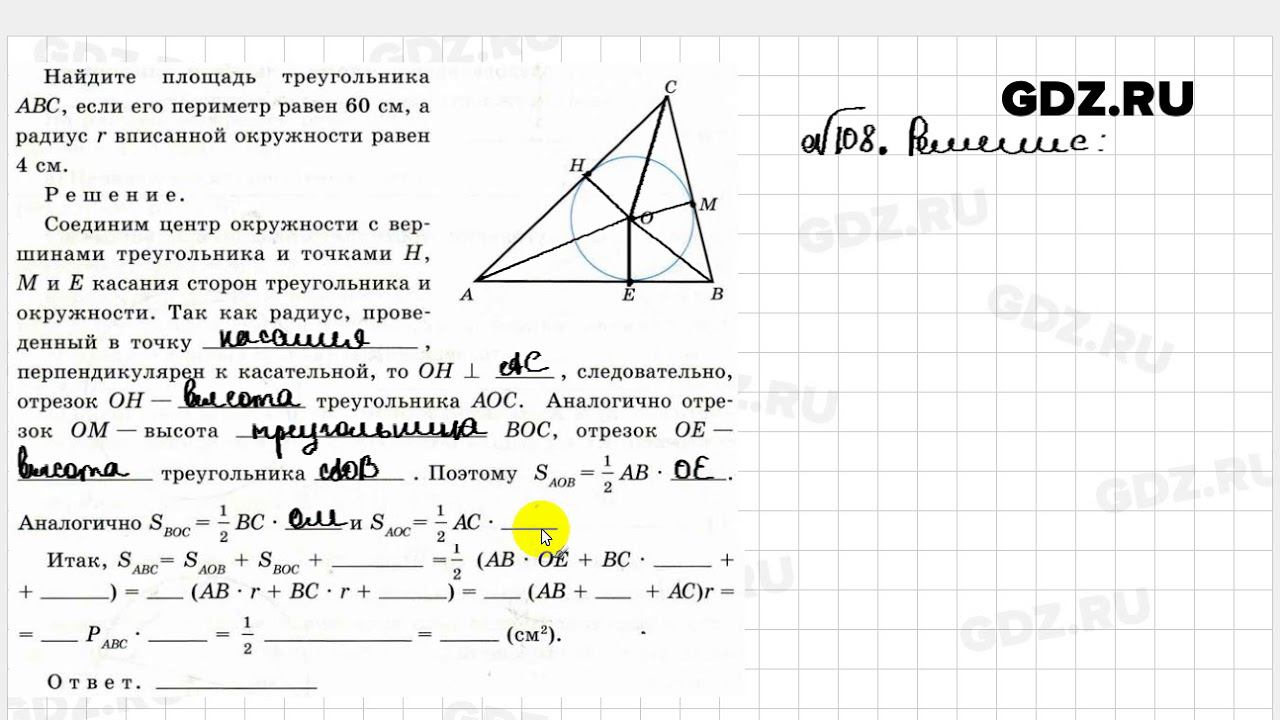 Найдите площадь треугольника
ABC, если его периметр равен 60 см, а
радиус r вписанной окружности равен
4 см.
Решение.
Соединим центр окружности с вер-
шинами треугольника и точками H,
M и E касания сторон треугольника и
окружности. Так как радиус, прове-
денный в точку касания ,
перпендикулярен к касательной, то OH ⊥ AC , следовательно,
отрезок OH — высота треугольника AOC. Аналогично отре-
зок OM — высота треугольника BOC, отрезок OE —
высота треугольника AOB . Поэтому S_AOB = 1/2 AB · OE .
Аналогично S_BOC = 1/2 BC · OM и S_AOC = 1/2 AC · ____
Итак, S_ABC = S_AOB + S_BOC + ____ = 1/2 (AB · OE + BC · ____ +
+ ____) = ____ (AB · r + BC · r + ____) = ____ (AB + ____ + AC)r =
= ____ P_ABC · ____ = 1/2 ____ = ____ (см²).
Ответ. ____
C
H
M
O
A
E
B
GDZ.RU
№108. Решение:
GDZ.RU
GDZ.RU
GDZ.RU
GDZ.RU
GDZ.RU
GDZ.RU